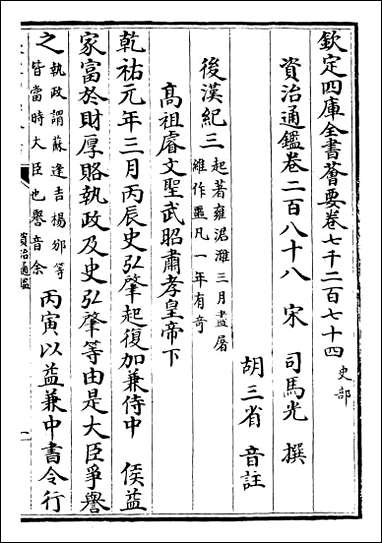 欽定四庫全書薈要卷七千二百七十四 史部
資治通鑑卷二百八十八 宋 司馬光 撰
胡三省 音註
後漢紀三 起著雍涒灘三月盡屠
維作噩凡一年有奇
髙祖睿文聖武昭肅孝皇帝下
乾祐元年三月丙辰史弘肇起復加兼侍中 侯益
家富於財厚賂執政及史弘肇等由是大臣爭譽
之 執政謂蘇逢吉楊邠等
皆當時大臣也譽音余
丙寅以益兼中書令行
資治通鑑